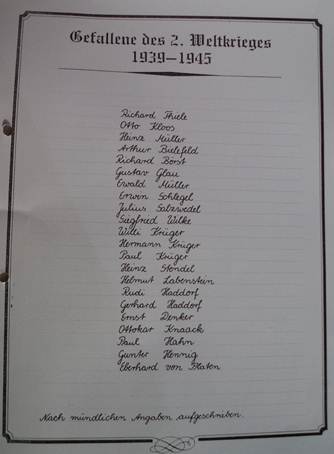 Gefallene des 2. Weltkrieges
1939–1945
Richard Thiele
Otto Kloos
Heinz Müller
Arthur Bielefeld
Richard Borst
Gustav Glau
Ewald Müller
Erwin Schlegel
Julius Salzwedel
Siegfried Wilke
Willi Krüger
Hermann Krüger
Paul Krüger
Heinz Stendel
Helmut Labenstein
Rudi Haddorf
Gerhard Haddorf
Ernst Denker
Ottokar Knaack
Paul Hahn
Gunter Hennig
Eberhard von Platen
Nach mündlichen Angaben aufgeschrieben.